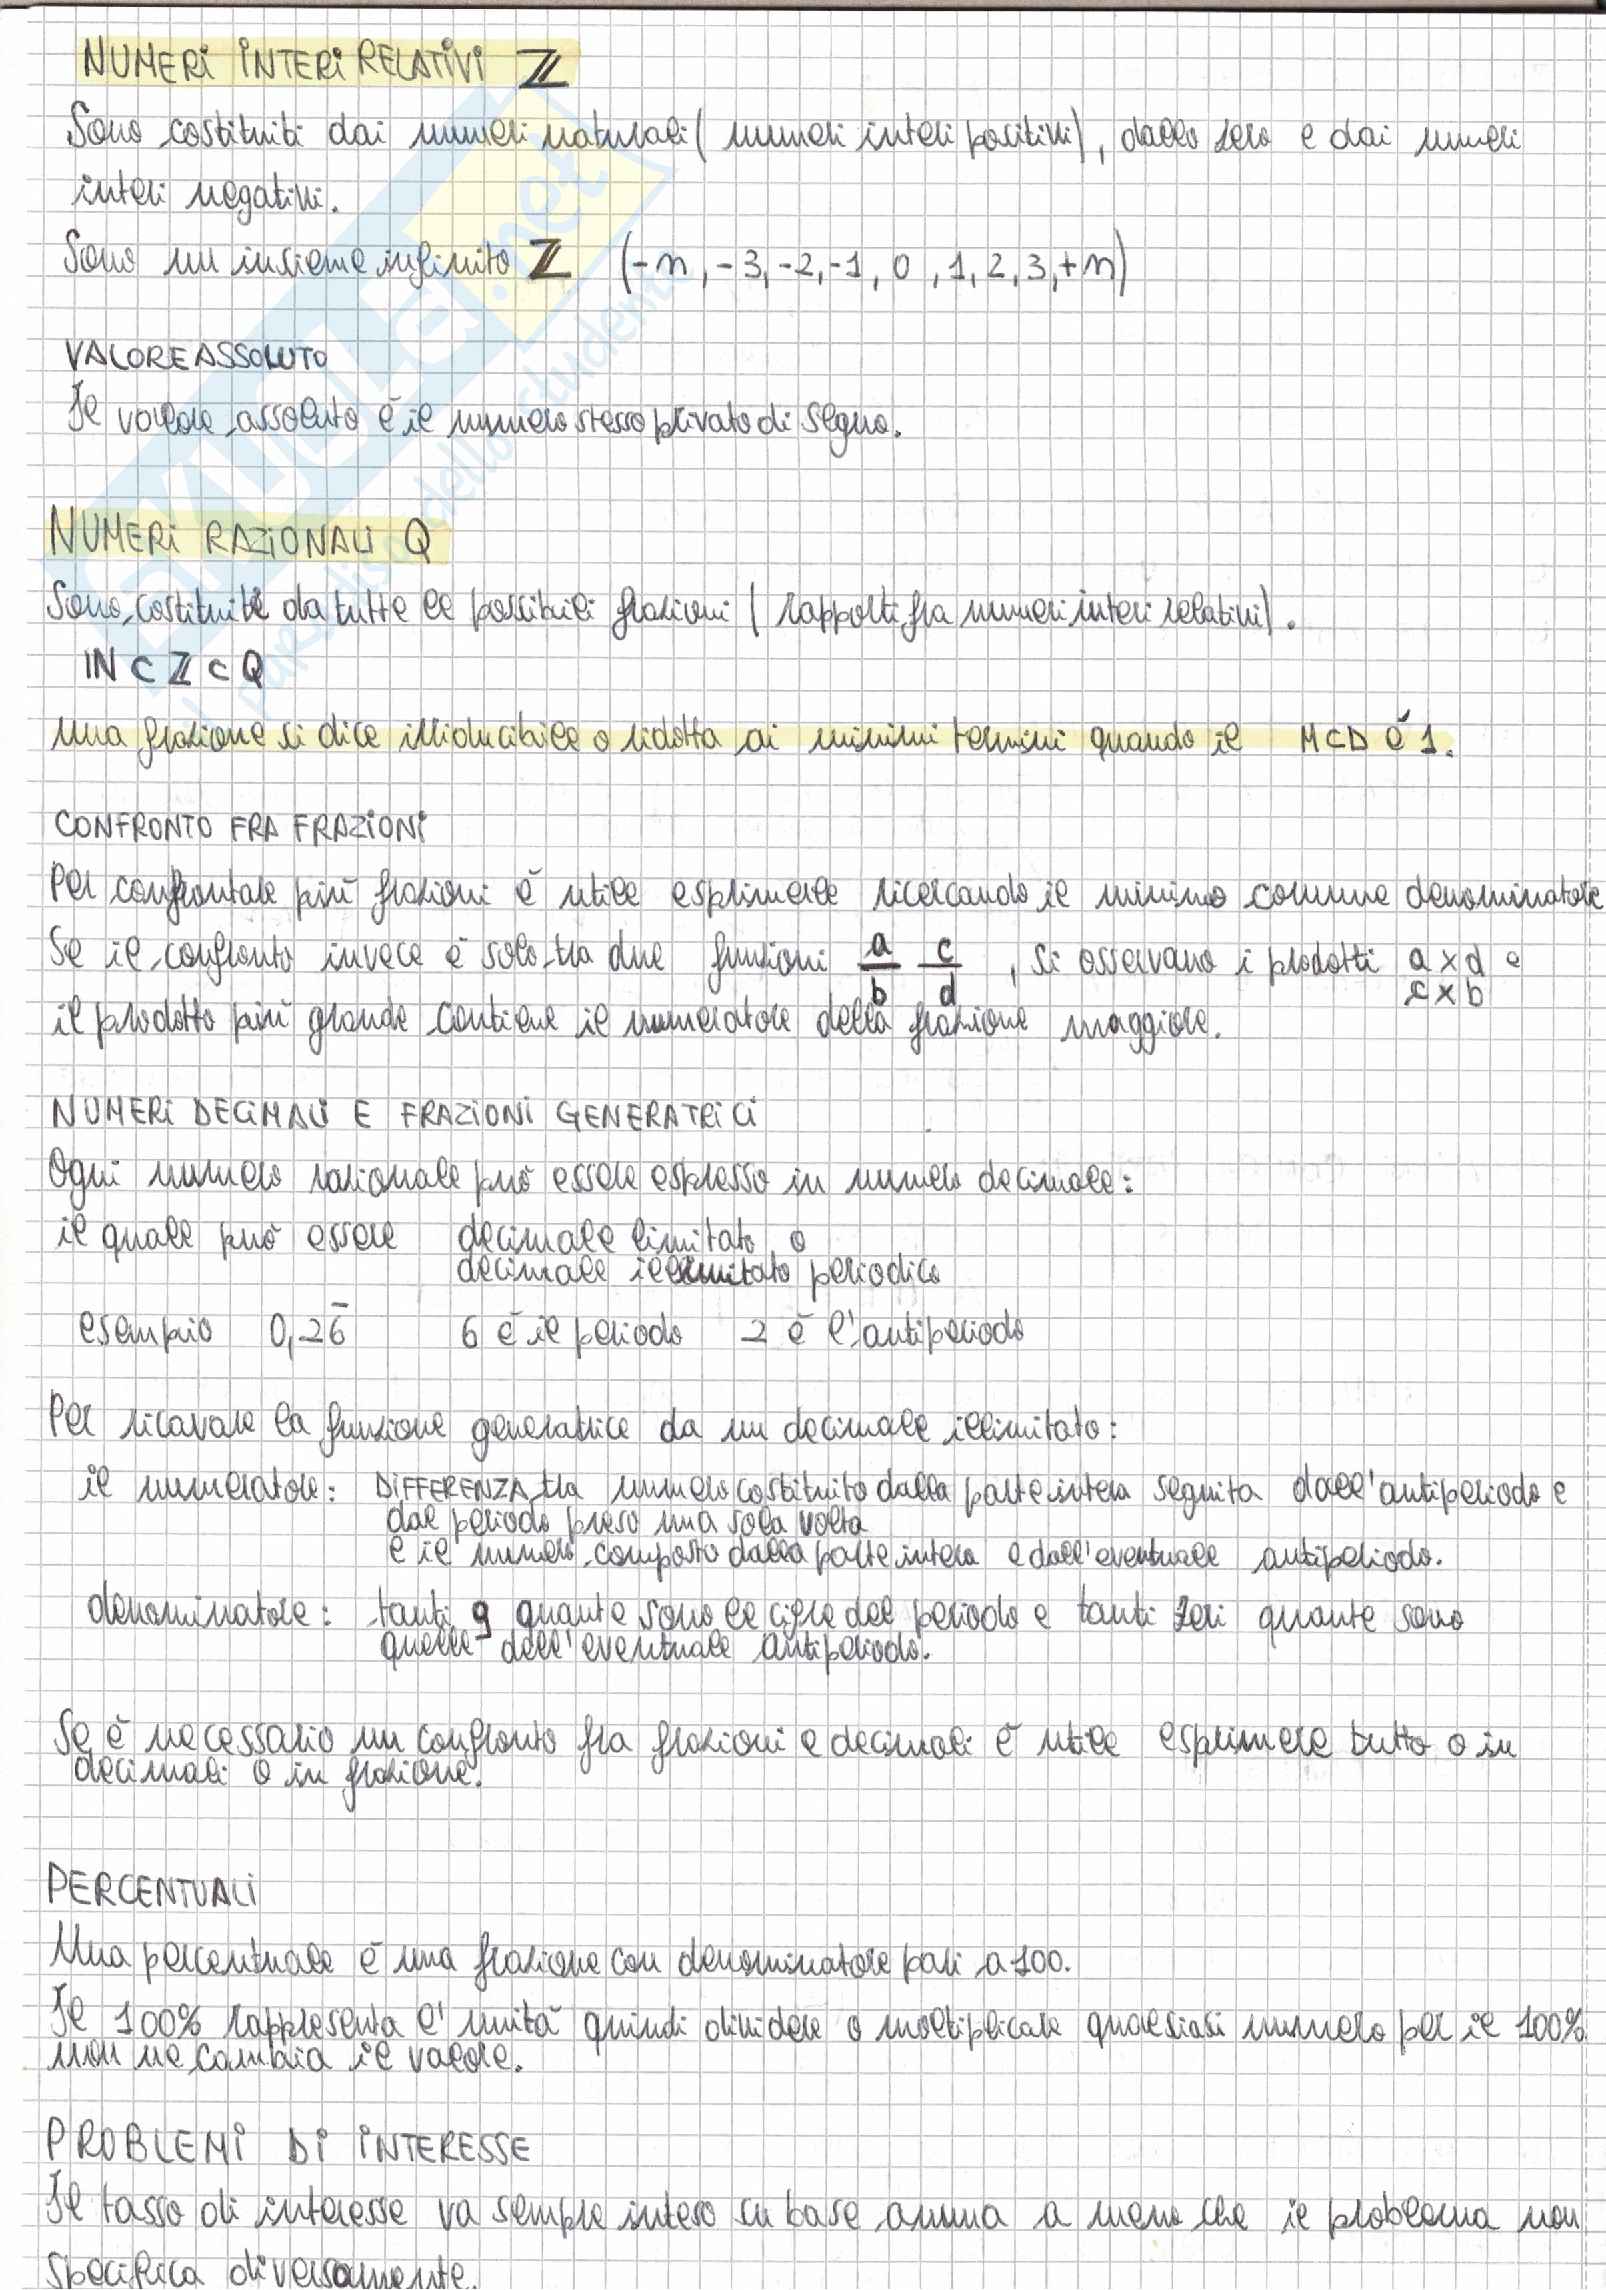 NUMERI INTERI RELATIVI ℤ
Sono costituiti dai numeri naturali (numeri interi positivi), dallo zero e dai numeri
interi negativi.
Sono un insieme infinito ℤ (-n, -3, -2, -1, 0, 1, 2, 3, +n)
VALORE ASSOLUTO
Il valore assoluto è il numero stesso privato di segno.
NUMERI RAZIONALI Q
Sono costituiti da tutte le possibili frazioni (rapporti fra numeri interi relativi).
IN ⊂ ℤ ⊂ Q
Una frazione si dice irriducibile o ridotta ai minimi termini quando il MCD è 1.
CONFRONTO FRA FRAZIONI
Per confrontare più frazioni è utile esprimerle ricercando il minimo comune denominatore
Se il confronto invece è solo tra due funzioni a/b c/d, si osservano i prodotti a x d e
c x b
il prodotto più grande contiene il numeratore della frazione maggiore.
NUMERI DECIMALI E FRAZIONI GENERATRICI
Ogni numero razionale può essere espresso in numero decimale:
il quale può essere decimale limitato o
decimale illimitato periodico
esempio 0,26̅ 6 è il periodo 2 è l'antiperiodo
Per ricavare la funzione generatrice da un decimale illimitato:
il numeratore: DIFFERENZA tra numero costituito dalla parte intera seguita dall'antiperiodo e
dal periodo preso una sola volta
e il numero composto dalla parte intera e dall'eventuale antiperiodo.
denominatore: tanti 9 quante sono le cifre del periodo e tanti zeri quante sono
quelle dell'eventuale antiperiodo.
Se è necessario un confronto fra frazioni e decimali è utile esprimere tutto o in
decimali o in frazione.
PERCENTUALI
Una percentuale è una frazione con denominatore pari a 100.
Il 100% rappresenta l'unità quindi dividere o moltiplicare qualsiasi numero per il 100%
non ne cambia il valore.
PROBLEMI DI INTERESSE
Il tasso di interesse va sempre inteso su base annua a meno che il problema non
specifica diversamente.
skuola.net
il paradiso dello studente